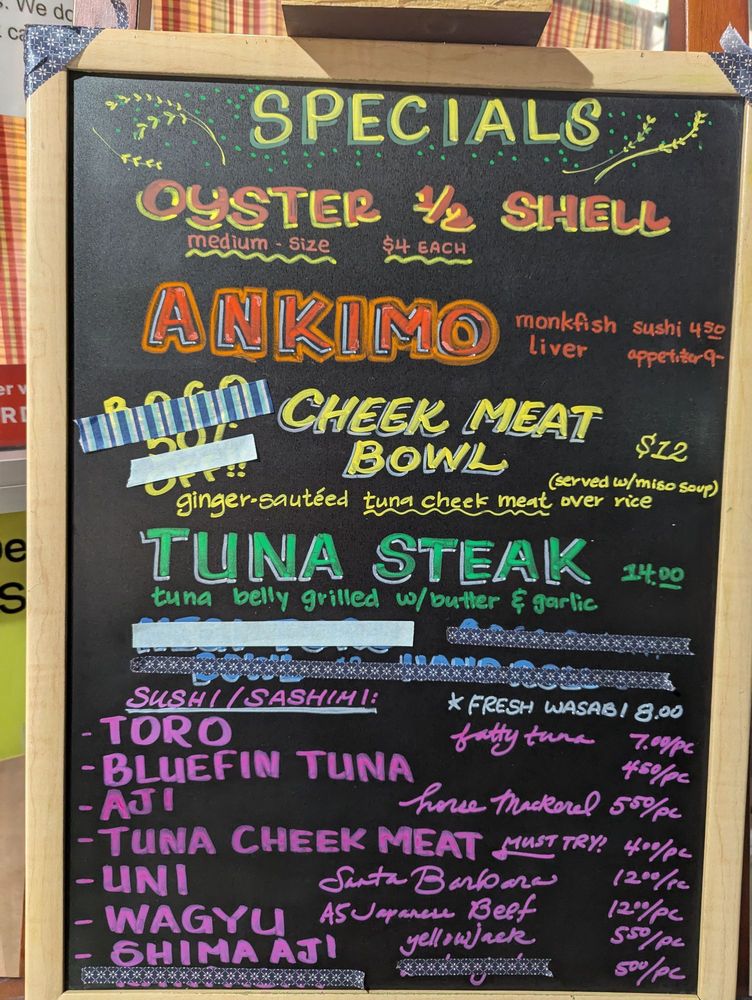 s. We do
SPECIALS
OYSTER 1/2 SHELL
medium - size $4 EACH
ANKIMO monkfish liver sushi 4 50 appetizer 9-
CHEEK MEAT BOWL $12
(served w/miso soup)
ginger-sautéed tuna cheek meat over rice
TUNA STEAK 14.00
tuna belly grilled w/butter & garlic
SUSHI/SASHIMI: * FRESH WASABI 8.00
- TORO fatty tuna 7.00/pc
- BLUEFIN TUNA 4 50/pc
- AJI horse mackerel 5 50/pc
- TUNA CHEEK MEAT MUST TRY! 4 00/pc
- UNI Santa Barbara 12 00/pc
- WAGYU A5 Japanese Beef 12 00/pc
- SHIMA AJI yellowjack 5 50/pc
5 00/pc